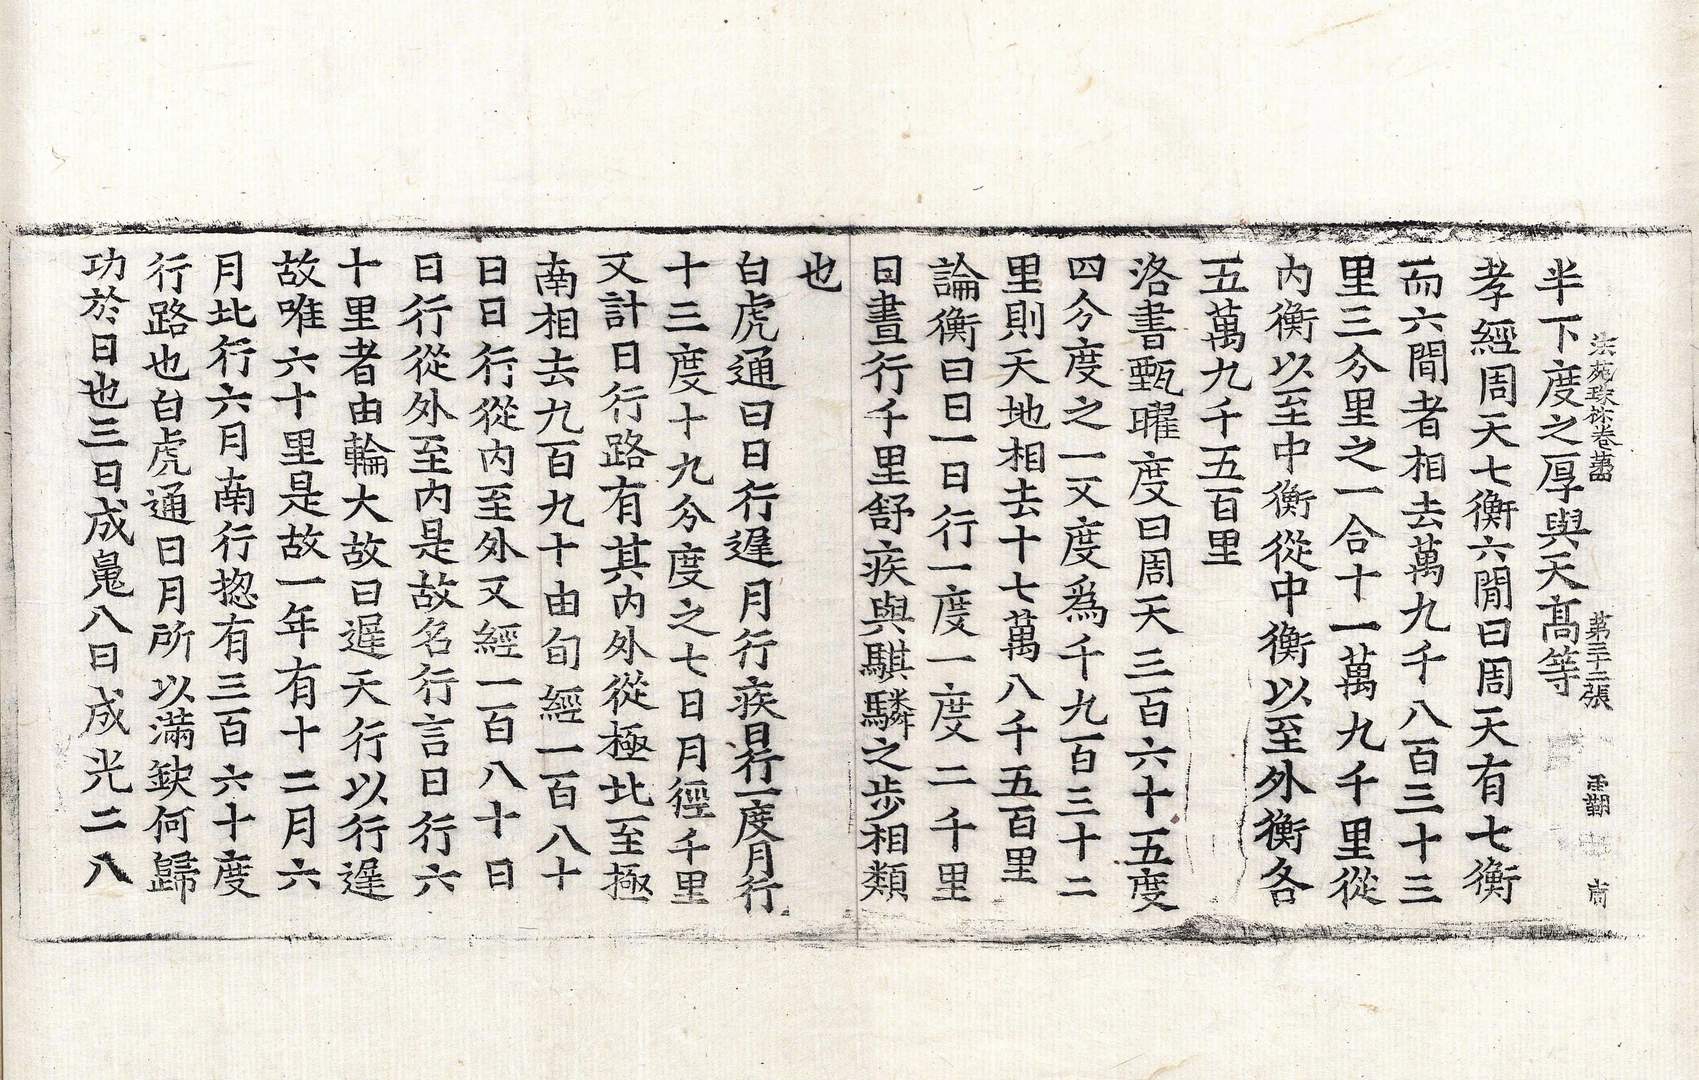 法苑珠林卷第四 第三十三張 霸 㡬
半下度之厚與天髙等
孝經周天七衡六間曰周天有七衡
而六間者相去萬九千八百三十三
里三分里之一合十一萬九千里從
内衡以至中衡從中衡以至外衡各
五萬九千五百里
洛書甄曜度曰周天三百六十五度
四分度之一又度爲千九百三十二
里則天地相去十七萬八千五百里
論衡曰日一日行一度一度二千里
日晝行千里舒疾與騏驎之步相類
也
白虎通曰日行遲月行疾日行一度月行
十三度十九分度之七日月徑千里
又計日行路有其内外從極北至極
南相去九百九十由旬經一百八十
日日行從内至外又經一百八十日
日行從外至内是故名行言日行六
十里者由輪大故日遲天行以行遲
故唯六十里是故一年有十二月六
月北行六月南行揔有三百六十度
行路也白虎通日月所以滿缺何歸
功於日也三日成魄八日成光二八